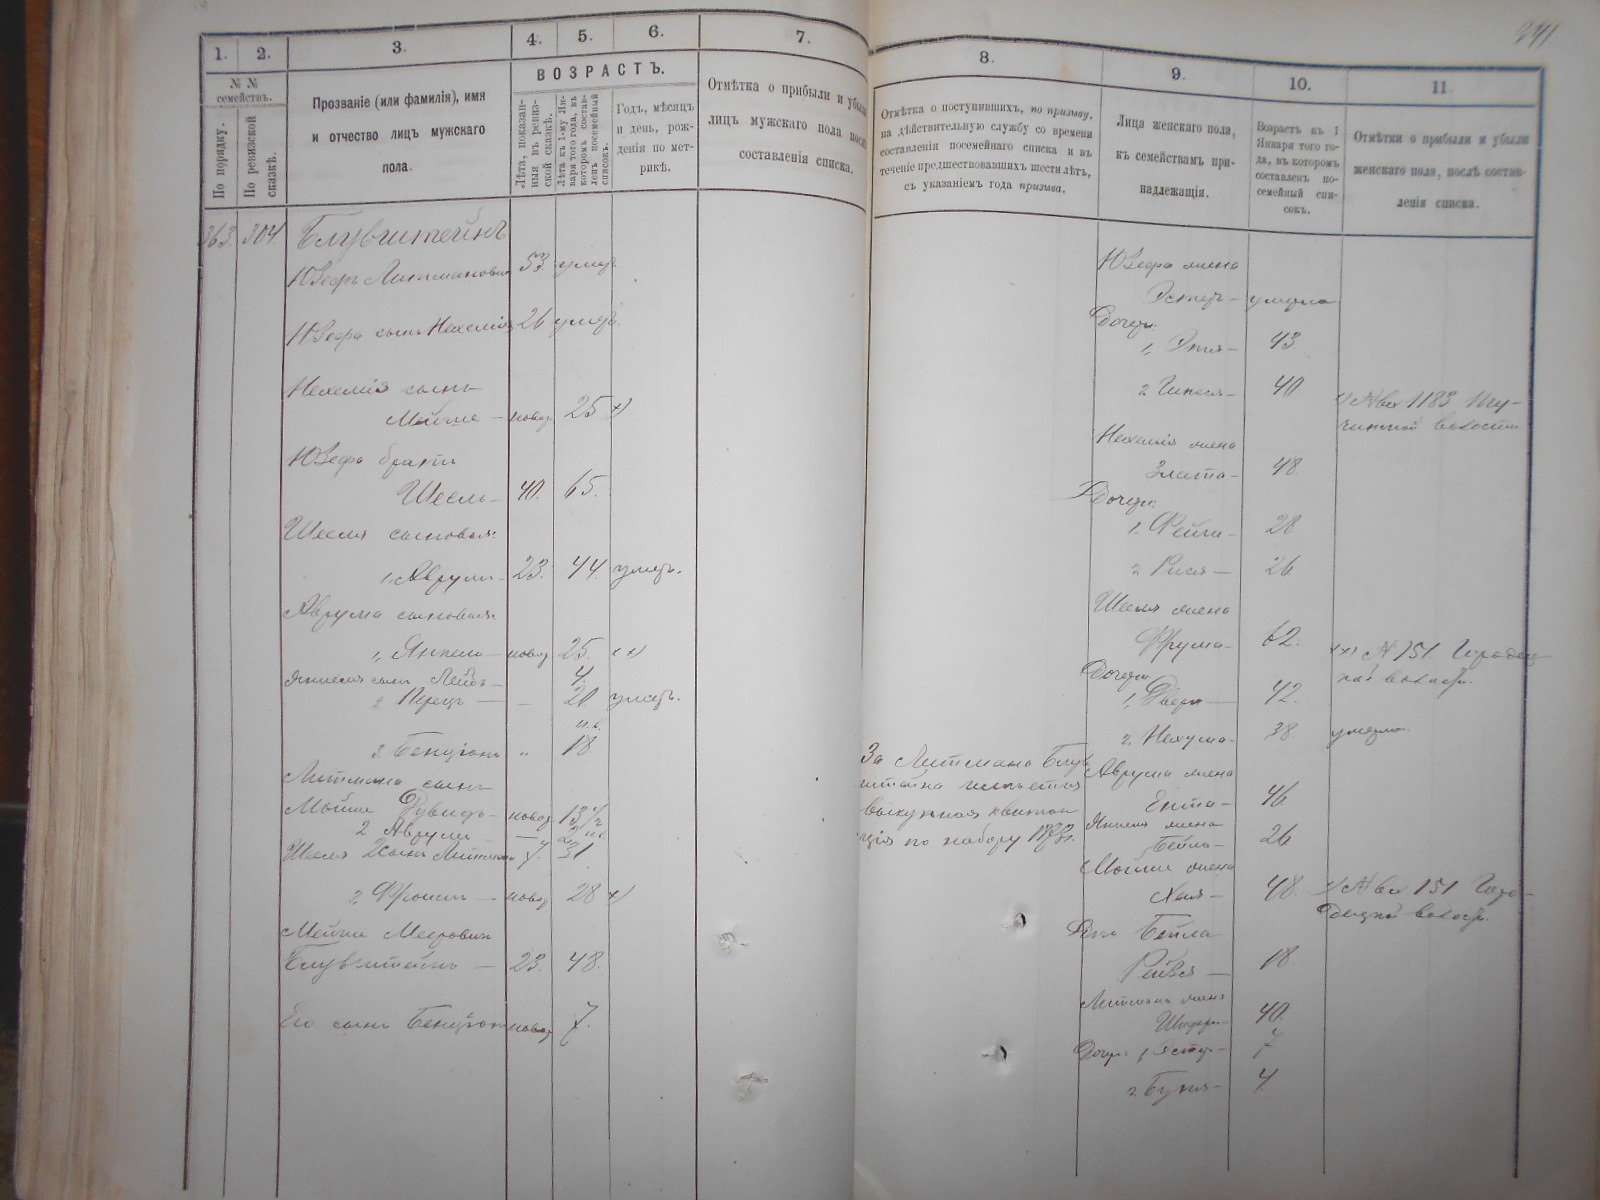 241
1.
2.
3.
4.
5.
6.
7.
№ №
семействъ.
По порядку.
По ревизской
сказкѣ.
Прозваніе (или фамилія), имя
и отчество лицъ мужскаго
пола.
ВОЗРАСТЪ.
Лѣта, показан-
ныя въ ревиз-
ской сказкѣ.
Лѣта къ 1-му Ян-
варя того года, въ
которомъ состав-
ленъ посемейный
списокъ.
Годъ, мѣсяцъ
и день, рож-
денія по мет-
рикѣ.
Отмѣтка о прибыли и убыли
лицъ мужскаго пола послѣ
составленія списка.
363. 304. Блувштейнъ
Юзефъ Литмановичъ 53 умеръ
Юзефа сынъ Нехемія 26 умеръ.
Нехемія сынъ
Мейше — новор. 25 х)
Юзефа братъ
Шеель — 40. 65.
Шееля сыновья:
1. Аврумъ — 23. 44. умеръ.
Аврума сыновья:
1, Янкель — новор 25. х х)
Янкеля сынъ Лейбъ — 4.
2 Перецъ — — 20 умеръ.
3 Бенціонъ " 18
Литмана сынъ
Мойше Дувидъ — новор 13
2 Аврумъ —
Шееля 2 сынъ Литманъ 7. 31
2, — новор 28 х)
Мейше Меeровичъ
Блувштейнъ — 23. 48.
Его сынъ Бенціонъ новор 7.
8.
9.
10.
11.
Отмѣтка о поступившихъ, по призыву,
на дѣйствительную службу со времени
составленія посемейнаго списка и въ
теченіе предшествовавшихъ шести лѣтъ,
съ указаніемъ года призыва.
Лица женскаго пола,
къ семействамъ при-
надлежащія.
Возрастъ къ 1
Января того го-
да, въ которомъ
составленъ по-
семейный спи-
сокъ.
Отмѣтки о прибыли и убыли
женскаго пола, послѣ состав-
ленія списка.
Юзефа жена
Эстеръ — умерла
Дочери:
1, — 43.
2 — 40
х) № 1183
волости
Нехемія жена
Злата — 48.
Дочери:
1. Фейга — 28
2 Рися — 26
Шееля жена
Фрума — 62.
хх) № 151
волости.
Дочери
1, Двера — 42.
2. Нехума — 38 умерла.
За Литмана Блув
штейна имѣется
выкупная квитан
ція по набору
Аврума жена
Ента — 46
Янкеля жена
Бейла — 26
Мойши жена
Хая — 48. х) № 151
волости.
Дочь Бейла
Рейзя — 18.
Литмана жена
— 40.
Дочери: 1, Эстеръ — 7
2. — 4.